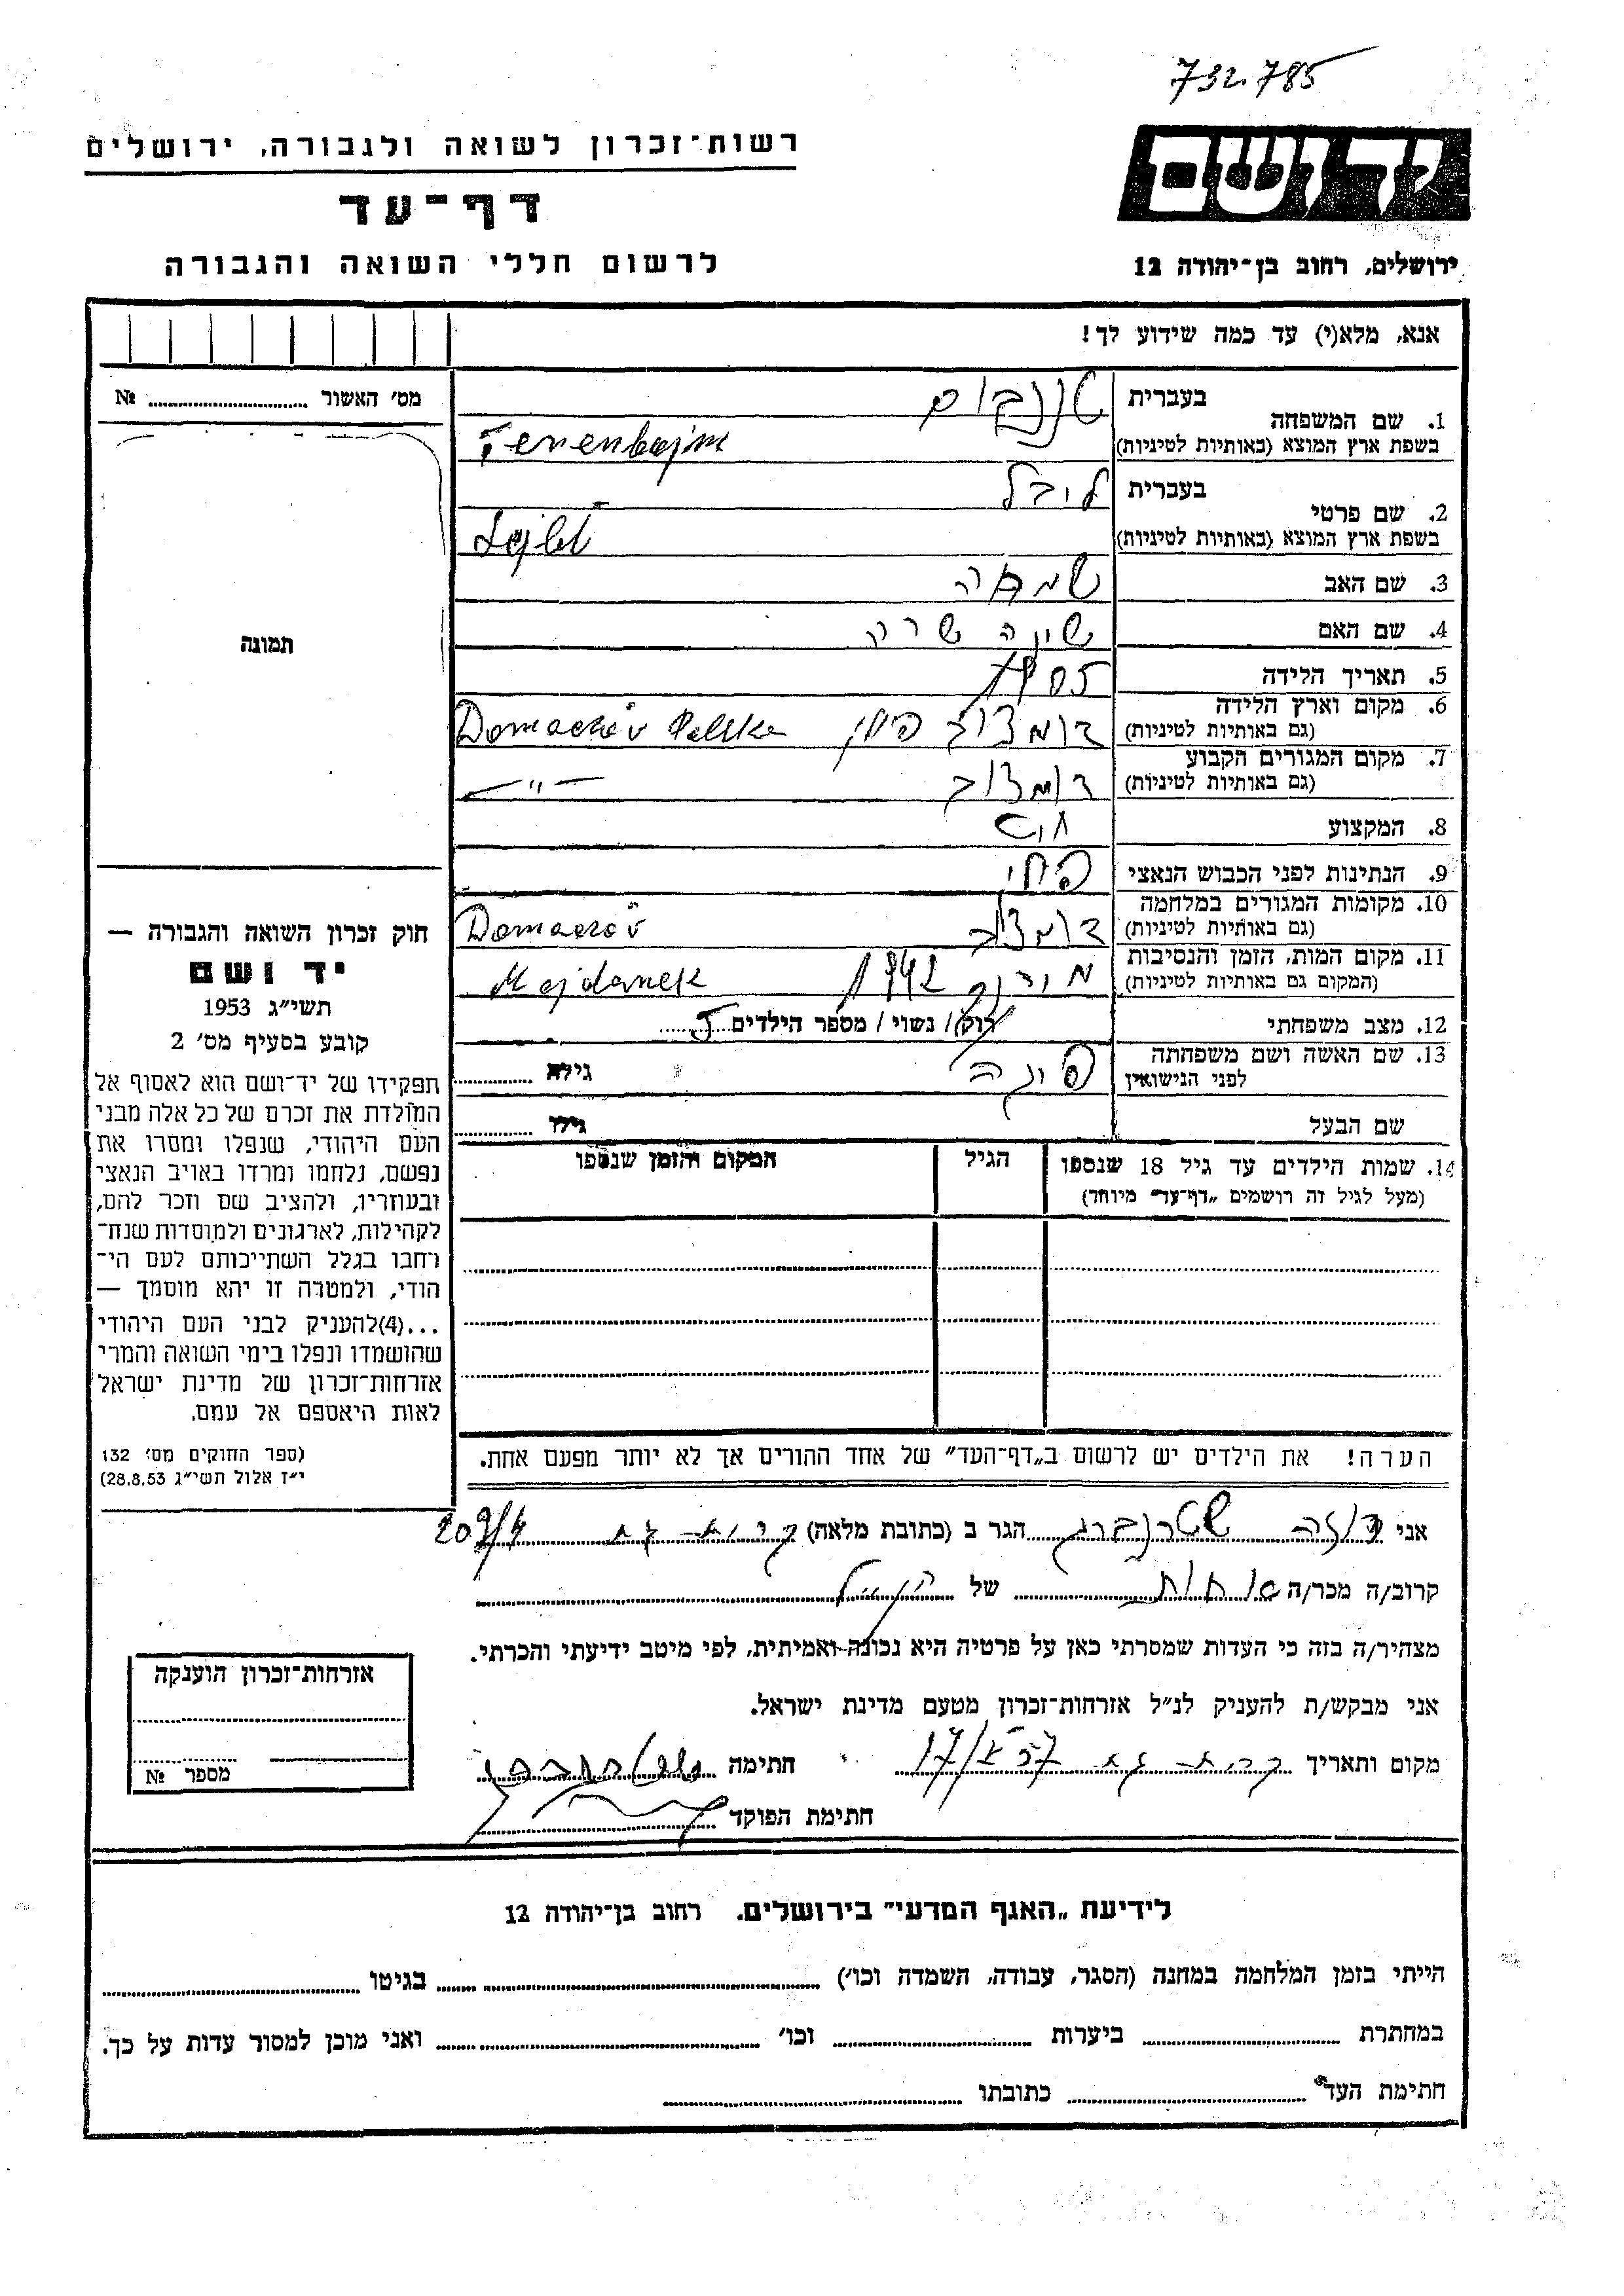 732.785
רשות־זכרון לשואה ולגבורה, ירושלים
דף־עד
לרשום חללי השואה והגבורה
יד ושם
ירושלים, רחוב בן־יהודה 12
אנא, מלא(י) עד כמה שידוע לך!
מס׳ האשור № 
תמונה
חוק זכרון השואה והגבורה —
יד ושם
תשי״ג 1953
קובע בסעיף מס׳ 2
תפקידו של יד־ושם הוא לאסוף אל
המולדת את זכרם של כל אלה מבני
העם היהודי, שנפלו ומסרו את
נפשם, נלחמו ומרדו באויב הנאצי
ובעוזריו, ולהציב שם וזכר להם,
לקהילות, לארגונים ולמוסדות שנח־
רחבו בגלל השתייכותם לעם הי־
הודי, ולמטרה זו יהא מוסמך —
...(4)להעניק לבני העם היהודי
שהושמדו ונפלו בימי השואה והמרי
אזרחות־זכרון של מדינת ישראל
לאות היאספם אל עמם.
(ספר החוקים מס׳ 132
י״ז אלול תשי״ג 28.8.53)
1. שם המשפחה בעברית טננבוים
בשפת ארץ המוצא (באותיות לטיניות) Tenenbojm
2. שם פרטי בעברית ליבל
בשפת ארץ המוצא (באותיות לטיניות) Lejbl
3. שם האב שמחה
4. שם האם שינה שרה
5. תאריך הלידה 1905
6. מקום וארץ הלידה (גם באותיות לטיניות) דומצוב פולין Domaczów Polska
7. מקום המגורים הקבוע (גם באותיות לטיניות) דומצוב —״—
8. המקצוע
9. הנתינות לפני הכבוש הנאצי
10. מקומות המגורים במלחמה (גם באותיות לטיניות) דומצוב Domaczów
11. מקום המות, הזמן והנסיבות (המקום גם באותיות לטיניות) 1942 Majdanek
12. מצב משפחתי רוק/ נשוי / מספר הילדים 5
13. שם האשה ושם משפחתה לפני הנישואין גילה
שם הבעל גילו
14. שמות הילדים עד גיל 18 שנספו הגיל המקום והזמן שנספו
(מעל לגיל זה רושמים „דף־עד״ מיוחד)
הערה! את הילדים יש לרשום ב„דף־העד״ של אחד ההורים אך לא יותר מפעם אחת.
אני רוזה שטרנברג הגר ב (כתובת מלאה) קרית־גת 209/4
קרוב/ה מכר/ה אחות של הנ״ל
מצהיר/ה בזה כי העדות שמסרתי כאן על פרטיה היא נכונה ואמיתית, לפי מיטב ידיעתי והכרתי.
אני מבקש/ת להעניק לנ״ל אזרחות־זכרון מטעם מדינת ישראל.
מקום ותאריך קרית גת 17/X 57 חתימה
חתימת הפוקד
אזרחות־זכרון הוענקה
מספר №
לידיעת „האגף המדעי״ בירושלים. רחוב בן־יהודה 12
הייתי בזמן המלחמה במחנה (הסגר, עבודה, השמדה וכו׳) בגיטו
במחתרת ביערות וכו׳ ואני מוכן למסור עדות על כך.
חתימת העד כתובתו